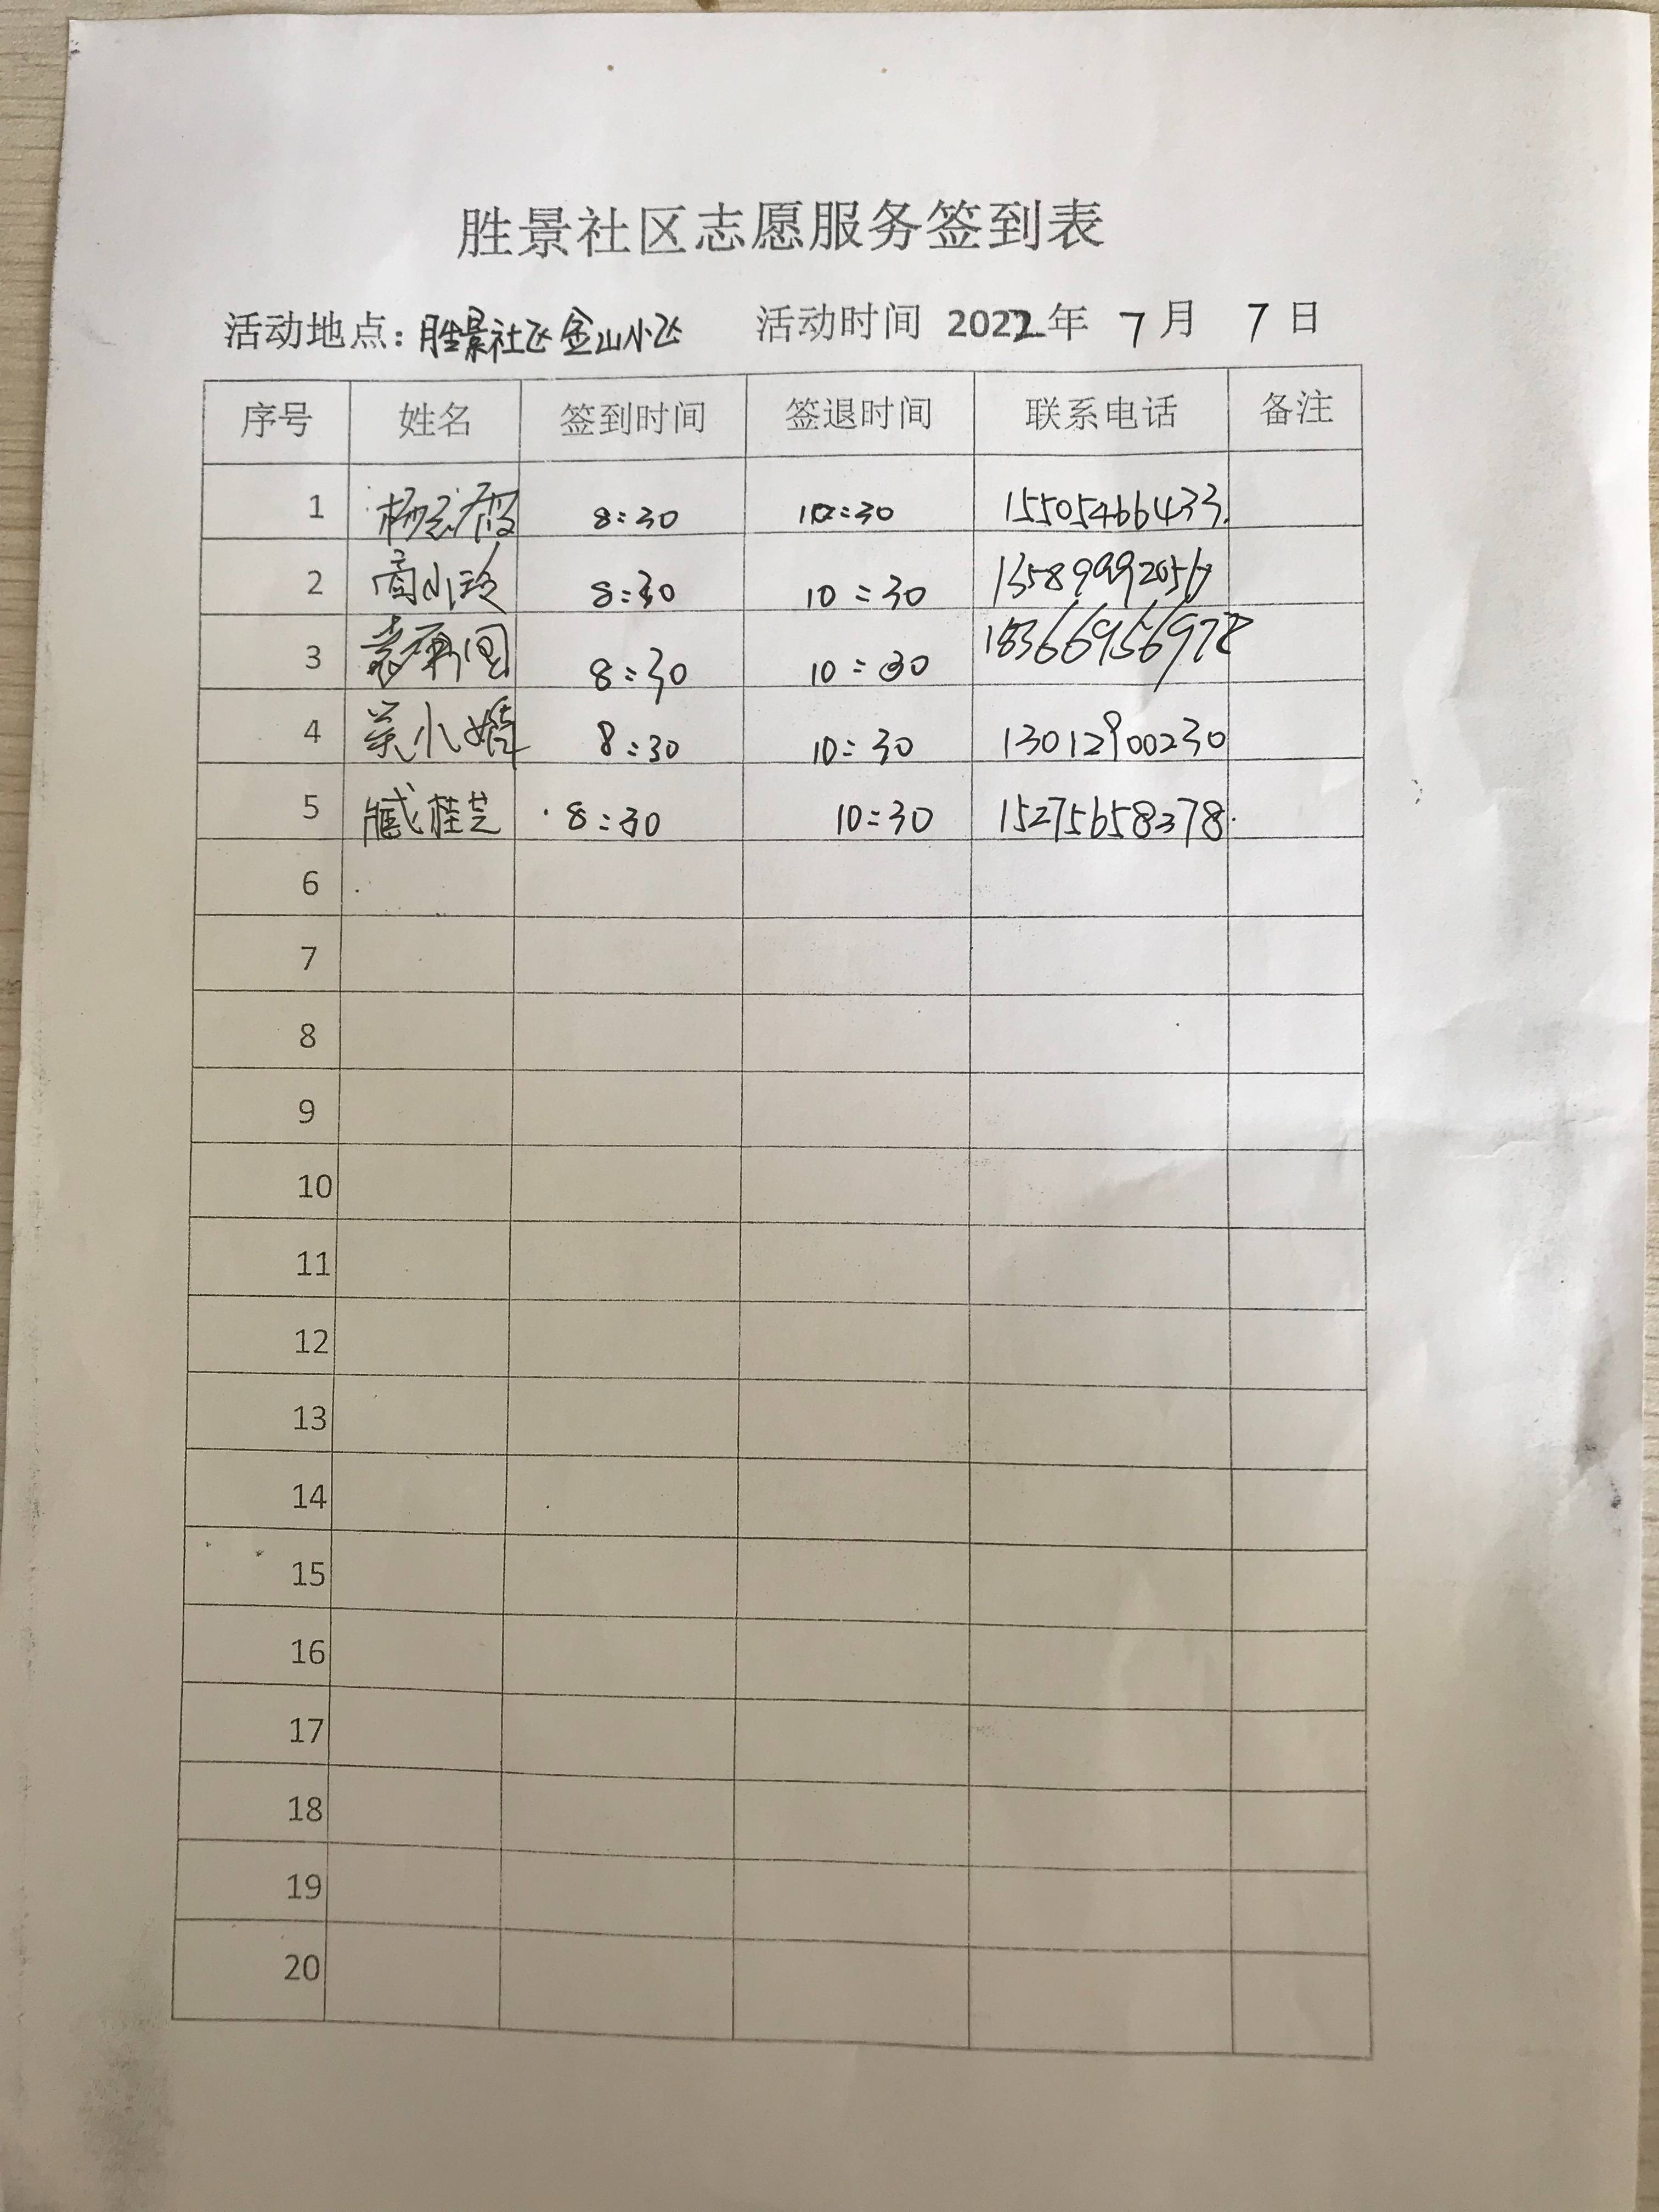 胜景社区志愿服务签到表
活动地点：胜景社区金山小区 活动时间 2022年 7月 7日
序号 姓名 签到时间 签退时间 联系电话 备注
1 杨 8:30 10:30 15505466433
2 高小玲 8:30 10:30
3 袁 8:30 10:30 18366956978
4 关小婧 8:30 10:30 13012900230
5 臧桂芝 8:30 10:30 15275658378
6
7
8
9
10
11
12
13
14
15
16
17
18
19
20